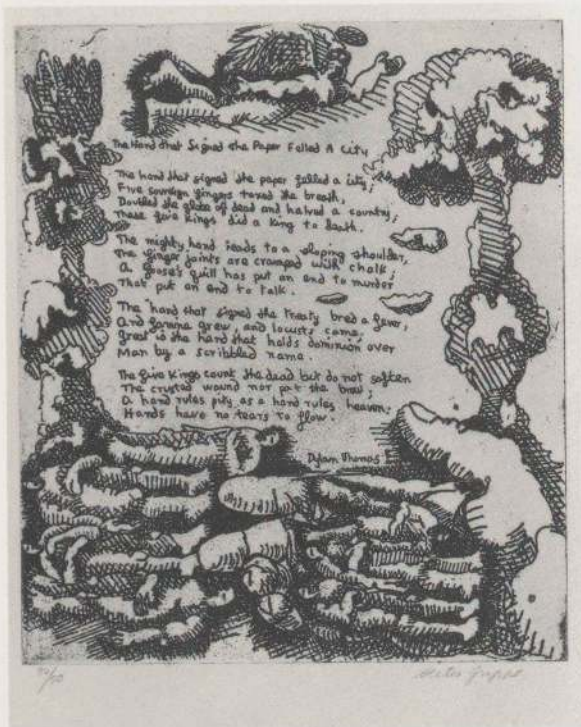 The Hand That Signed the Paper Felled A City
The hand that signed the paper felled a city;
Five sovereign fingers taxed the breath,
Doubled the globe of dead and halved a country;
These five kings did a king to death.
The mighty hand leads to a sloping shoulder,
The finger joints are cramped with chalk;
A goose's quill has put an end to murder
That put an end to talk.
The hand that signed the treaty bred a fever,
And famine grew, and locusts came;
Great is the hand that holds dominion over
Man by a scribbled name.
The five kings count the dead but do not soften
The crusted wound nor pat the brow;
A hand rules pity as a hand rules heaven;
Hands have no tears to flow.
Dylan Thomas